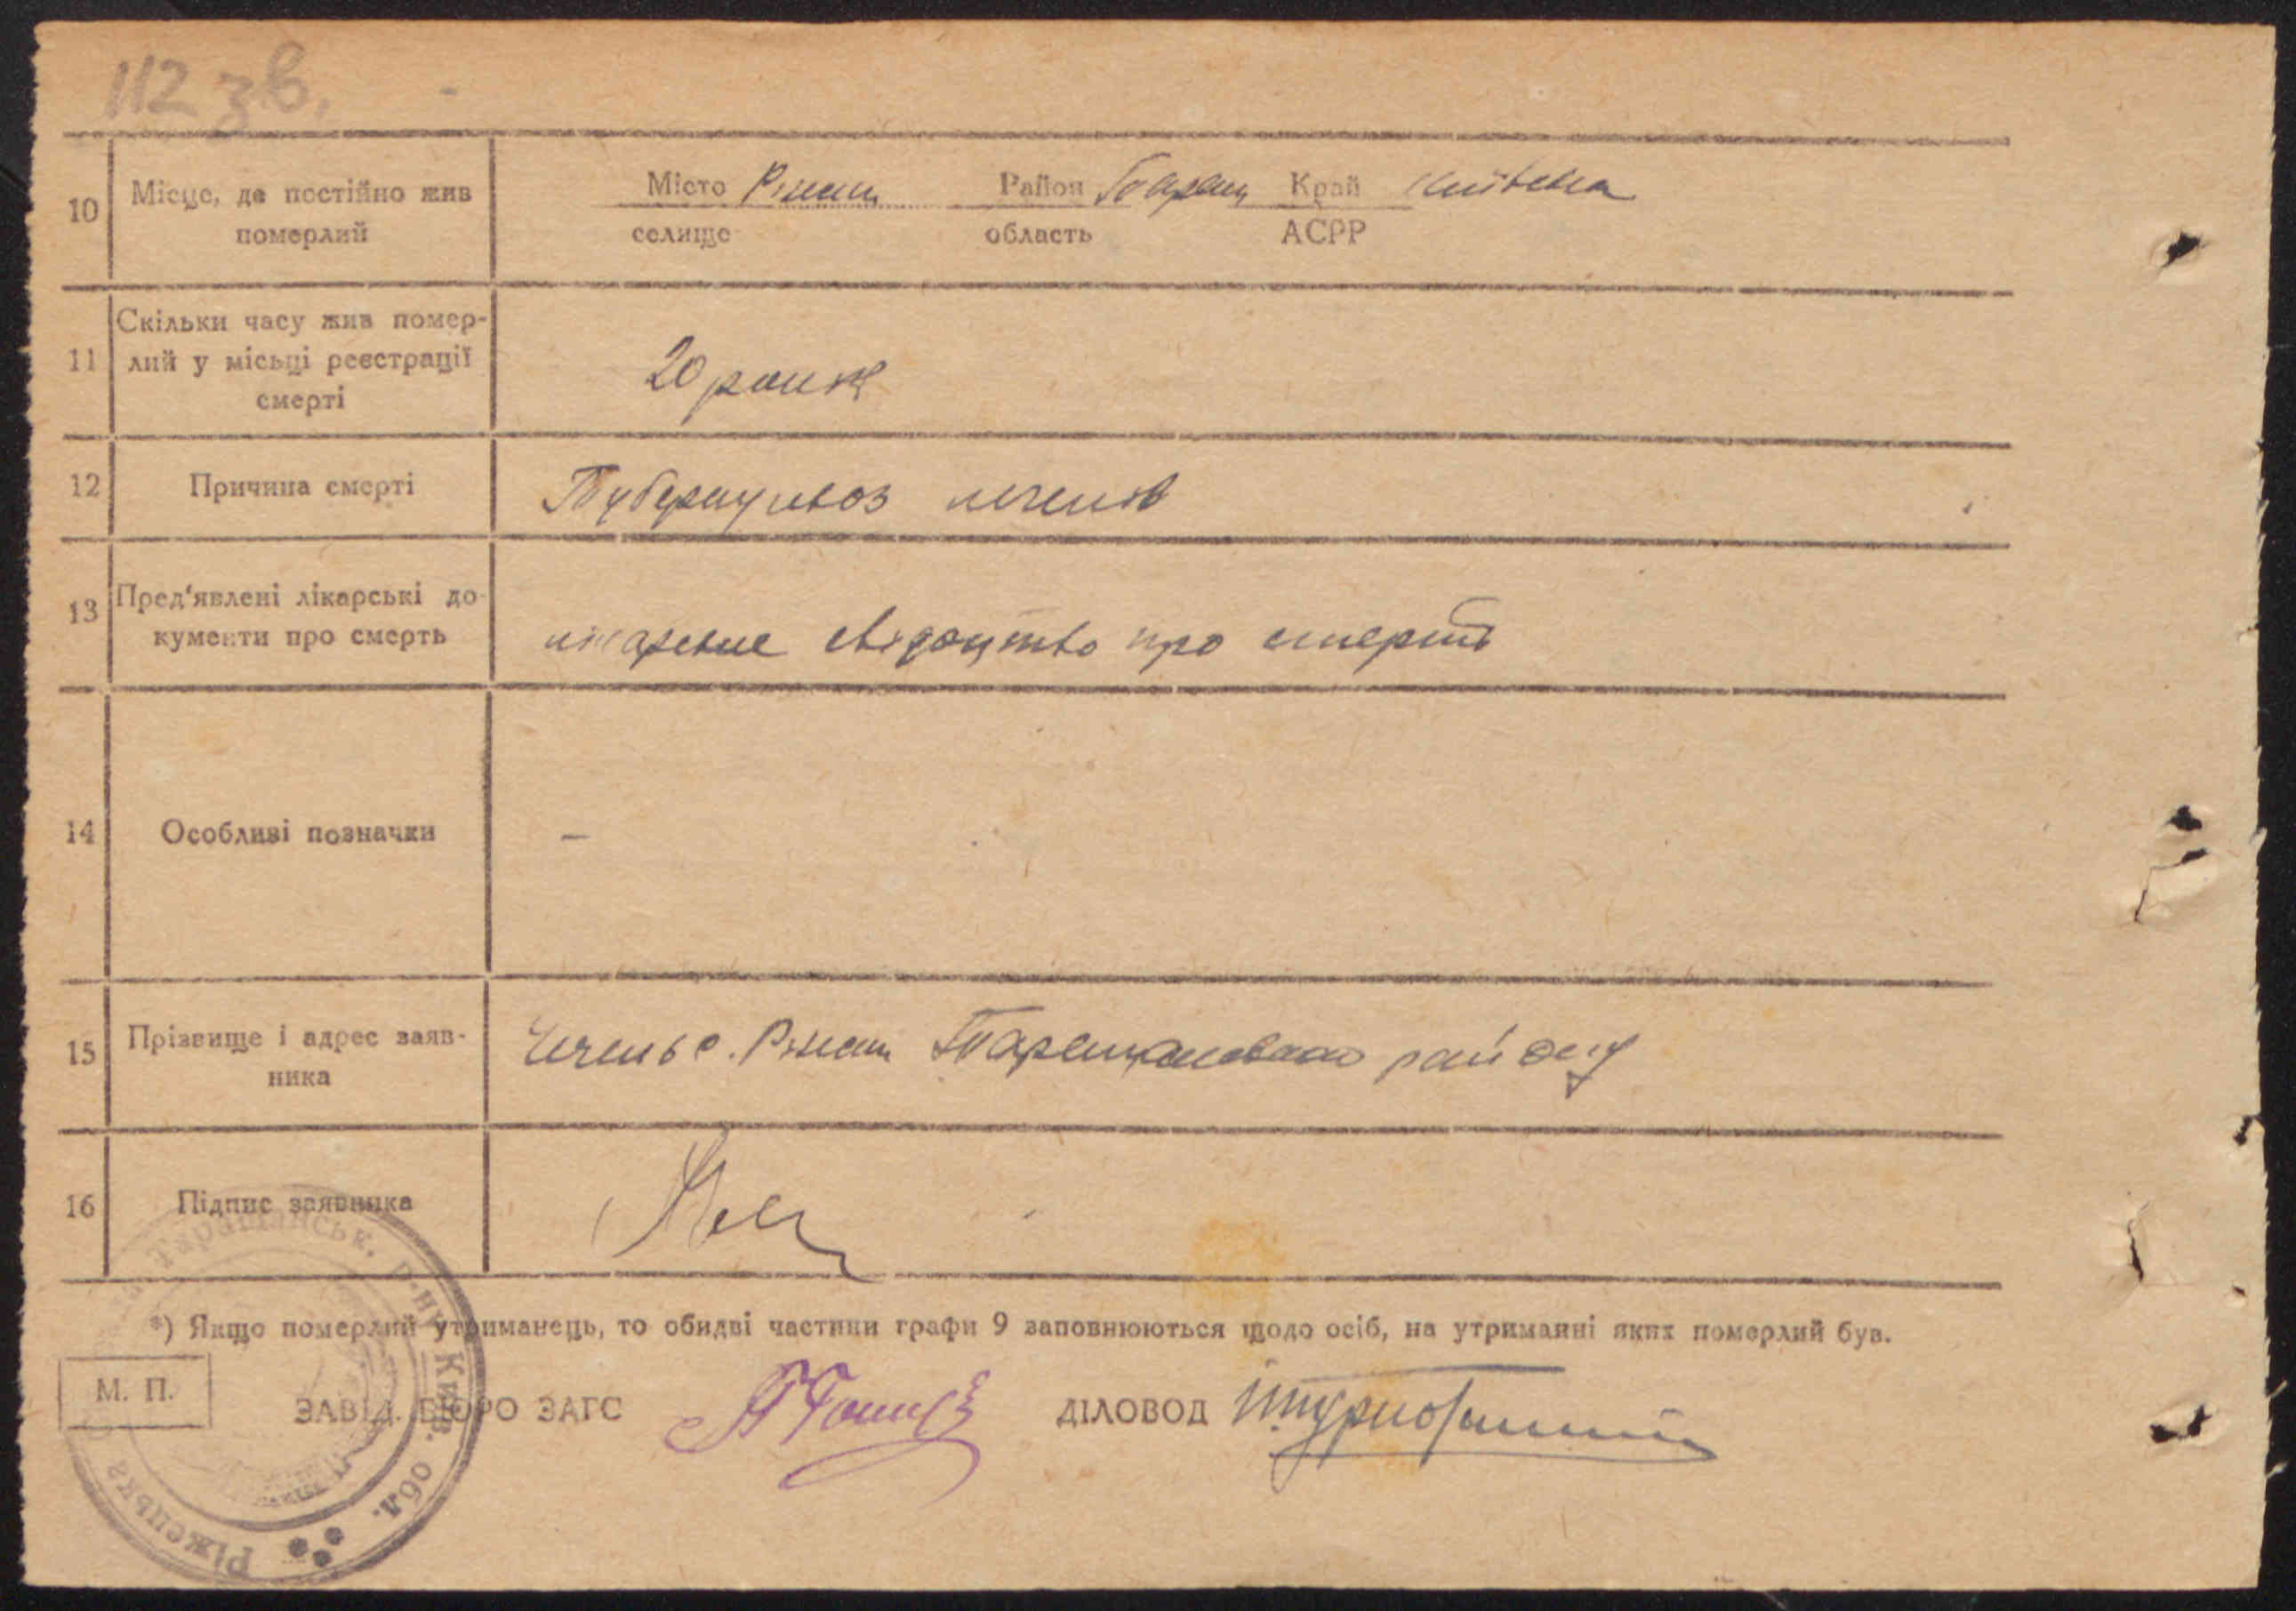 112 зв.
10 Місце, де постійно жив померлий
Місто Ріжки Район Таращ Край Київська
селище область АСРР
11 Скільки часу жив помер-
лий у місьці реєстрації
смерті
20 років
12 Причина смерті Туберкульоз легенів
13 Пред'явлені лікарські до-
кументи про смерть
лікарське свідоцтво про смерть
14 Особливі позначки —
15 Прізвище і адрес заяв-
ника
с. Таращанського району
16 Підпис заявника
Таращанськ. р-ну Київ. обл.
Ріжецька
*) Якщо померлий утриманець, то обидві частини графи 9 заповнюються щодо осіб, на утриманні яких померлий був.
М. П.
ЗАВІД. БЮРО ЗАГС ДІЛОВОД